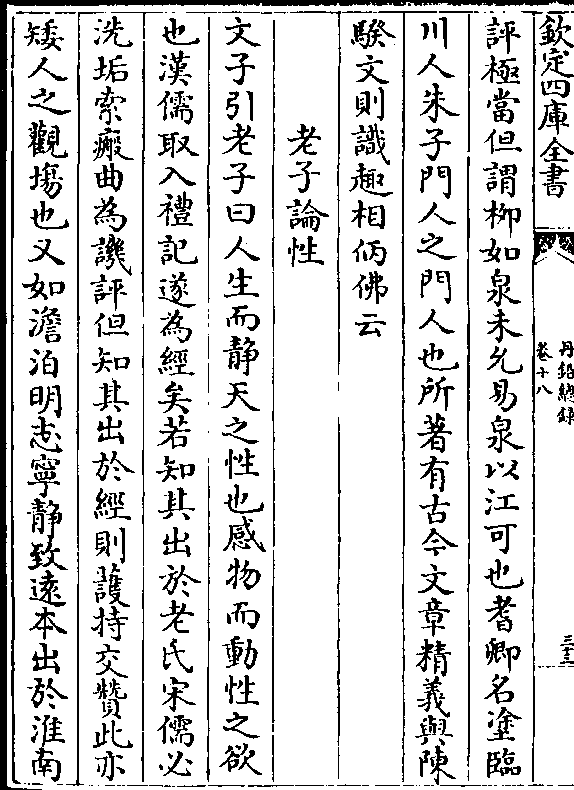 欽定四庫全書
丹鉛總錄
卷十八
三十三
評極當但謂柳如泉未允易泉以江可也耆卿名塗臨
川人朱子門人之門人也所著有古今文章精義與陳
騤文則識趣相伯佛云
老子論性
文子引老子曰人生而静天之性也感物而動性之欲
也漢儒取入禮記遂為經矣若知其出於老氏宋儒必
洗垢索瘢曲為譏評但知其出於經則護持交贊此亦
矮人之觀塲也又如澹泊明志寧静致遠本出於淮南